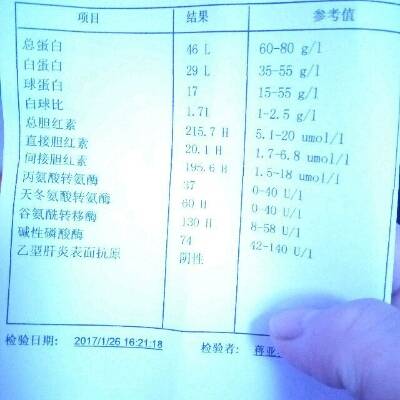 项目 结果 参考值
总蛋白 46 L 60-80 g/l
白蛋白 29 L 35-55 g/l
球蛋白 17 15-55 g/l
白球比 1.71 1-2.5 g/l
总胆红素 215.7 H 5.1-20 umol/l
直接胆红素 20.1 H 1.7-6.8 umol/l
间接胆红素 195.6 H 1.5-18 umol/l
丙氨酸转氨酶 37 0-40 U/l
天冬氨酸转氨酶 60 H 0-40 U/l
谷氨酰转移酶 130 H 8-58 U/l
碱性磷酸酶 74 42-140 U/l
乙型肝炎表面抗原 阴性
检验日期: 2017/1/26 16:21:18 检验者: 蒋亚